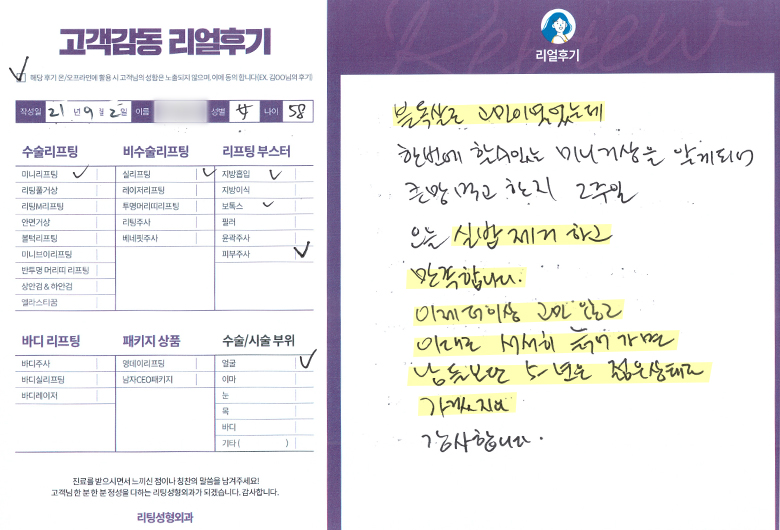 고객감동 리얼후기
해당 후기 온/오프라인에 활용 시 고객님의 성함은 노출되지 않으며, 이에 동의 합니다(EX. 김OO님의 후기)
작성일 21년 9월 2일 이름 성별 女 나이 58
수술리프팅
미니리프팅
리팅풀거상
리팅M리프팅
안면거상
볼턱리프팅
미니브이리프팅
반투명 머리띠 리프팅
상안검 & 하안검
엘라스티꿈
비수술리프팅
실리프팅
레이저리프팅
투명머리띠리프팅
리팅주사
베네핏주사
리프팅 부스터
지방흡입
지방이식
보톡스
필러
윤곽주사
피부주사
바디 리프팅
바디주사
바디실리프팅
바디레이저
패키지 상품
영데이리프팅
남자CEO패키지
수술/시술 부위
얼굴
이마
눈
목
바디
기타 ( )
진료를 받으시면서 느끼신 점이나 칭찬의 말씀을 남겨주세요!
고객님 한 분 한 분 정성을 다하는 리팅성형외과가 되겠습니다. 감사합니다.
리팅성형외과
Review
리얼후기
불독살로 고민이었었는데
한번에 할수있는 미니거상을 알게되어
큰맘 먹고 한지 2주일
오늘 실밥 제거 하고
만족합니다.
이제 더이상 고민 않고
이대로 서서히 늙어 가면
남들보단 5년은 젊은상태로
가겠지요
감사합니다.